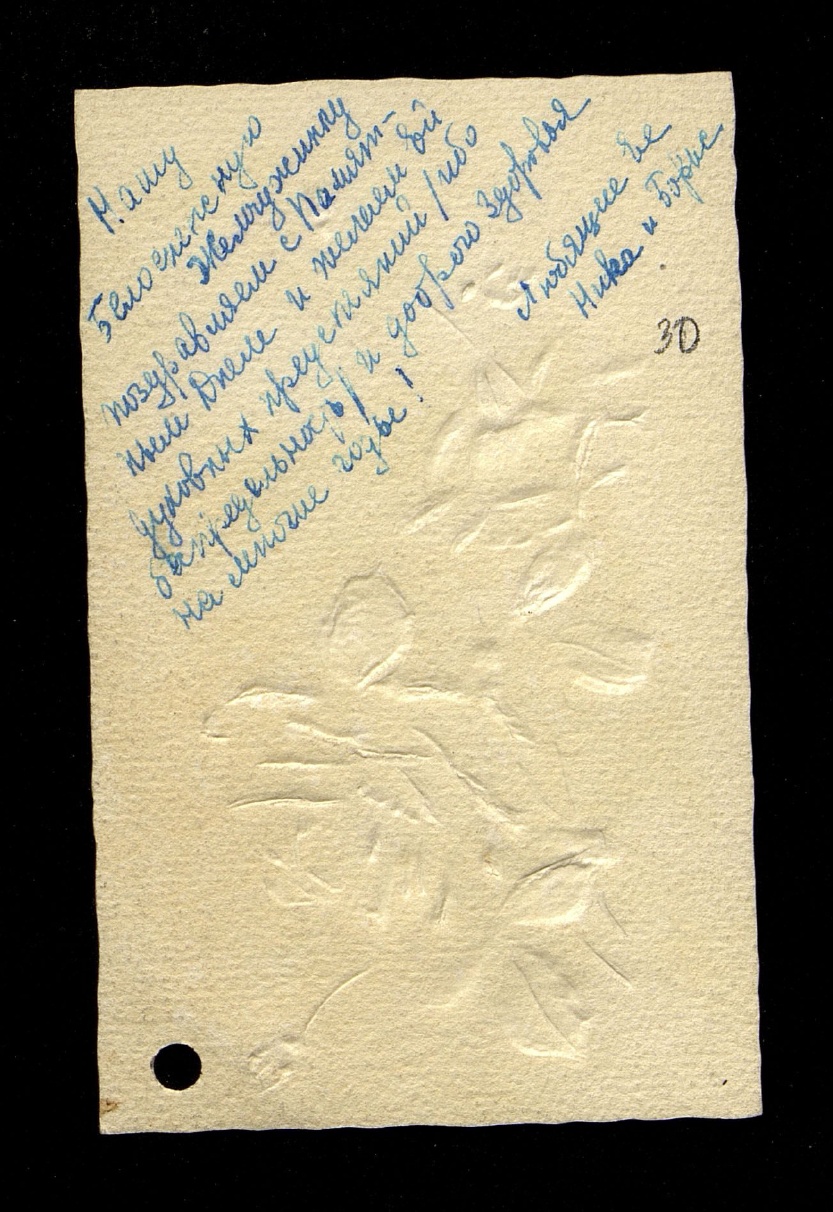 Нашу
Белоснежную
Жемчужинку
поздравляем с Памят-
ным Днем и желаем ей
духовных предстояний /ибо
запредельность/ и доброго здоровья
на многие годы!
Любящие Ее
Ника и Борис.
30